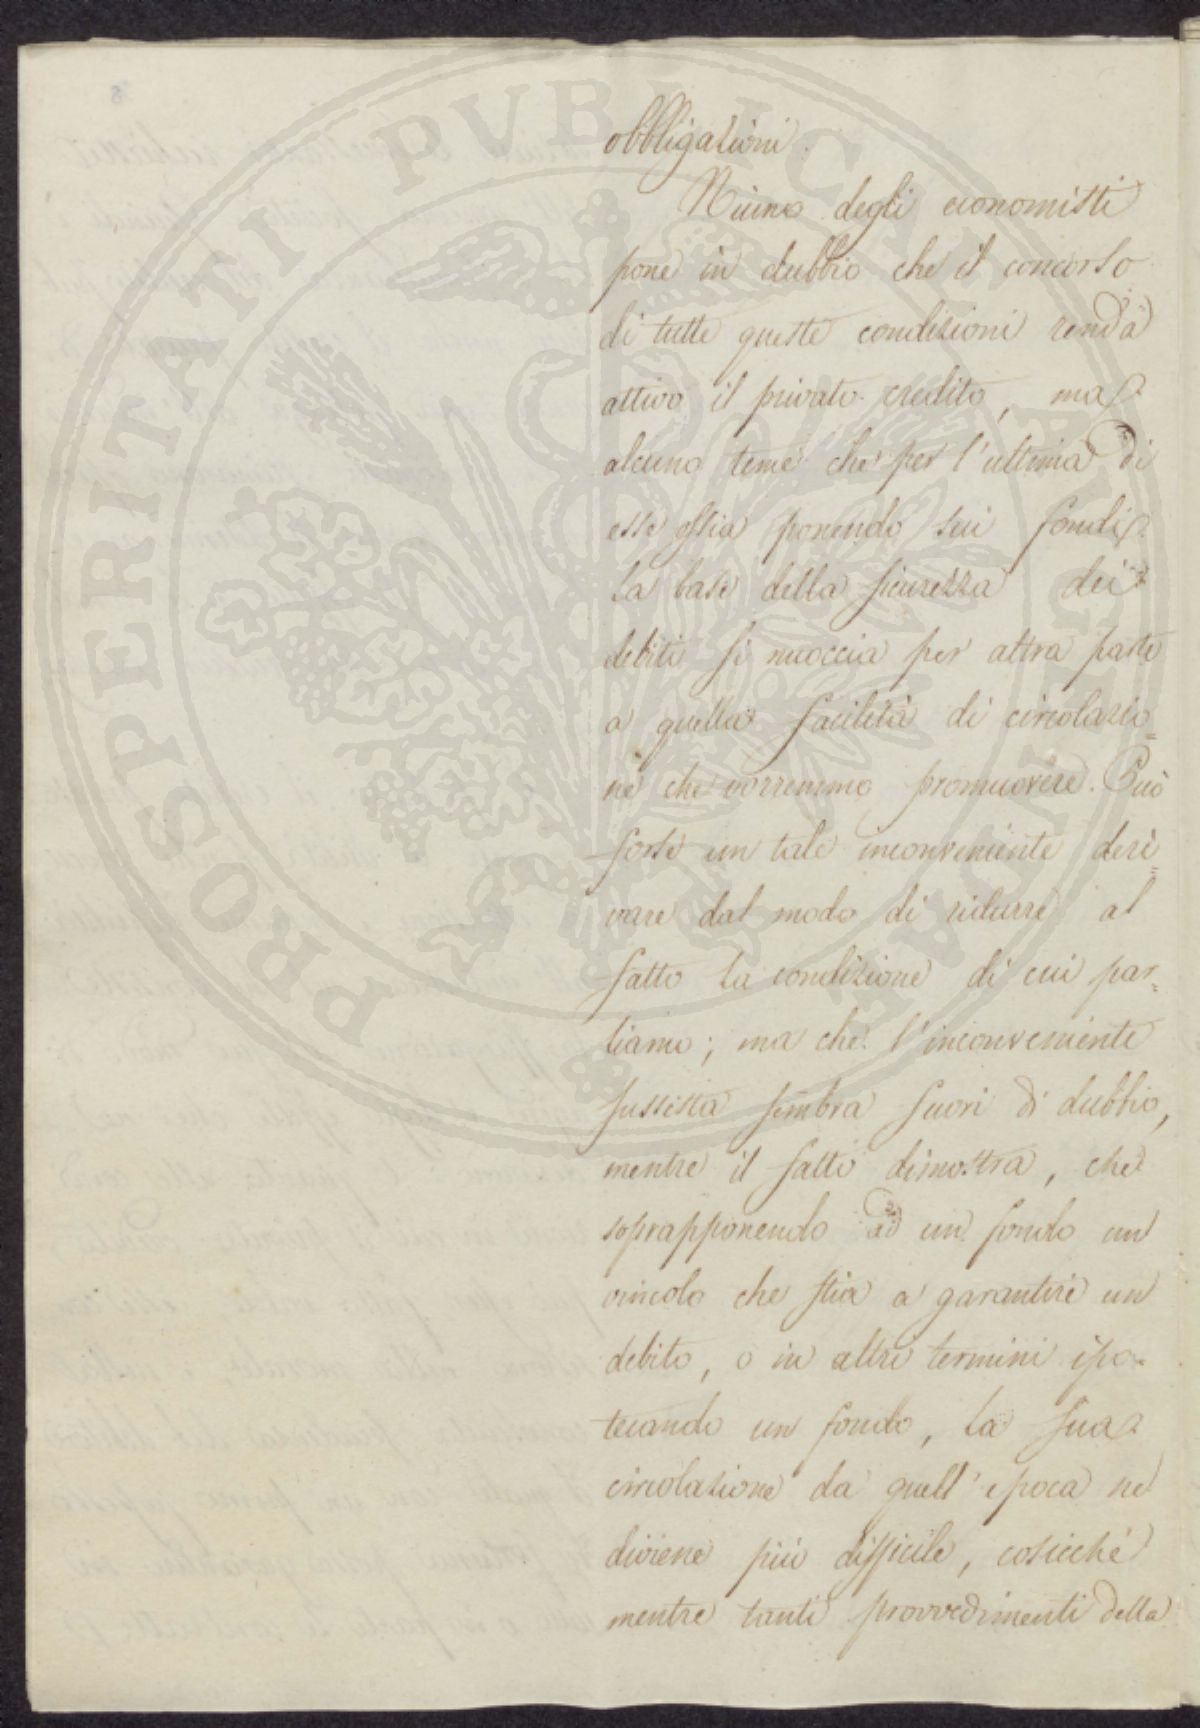 obbligazioni.
Niuno degli economisti
pone in dubbio che il concorso
di tutte queste condizioni renda
attivo il privato credito, ma
alcuno teme che per l'ultima di
esse ossia ponendo sui fondi
la base della sicurezza dei
debiti si nuoccia per altra parte
a quella facilità di circolazio=
ne che vorremmo promuovere. Può
forse un tale inconveniente deri=
vare dal modo di ridurre al
fatto la condizione di cui par=
liamo; ma che l'inconveniente
sussista sembra fuori di dubbio,
mentre il fatto dimostra, che
soprapponendo ad un fondo un
vincolo che stia a garantire un
debito, o in altri termini ipo=
tecando un fondo, la sua
circolazione da quell'epoca ne
diviene più difficile, cosicché
mentre tanti provvedimenti della
PROSPERITATI PUBLICAE AUGENDAE